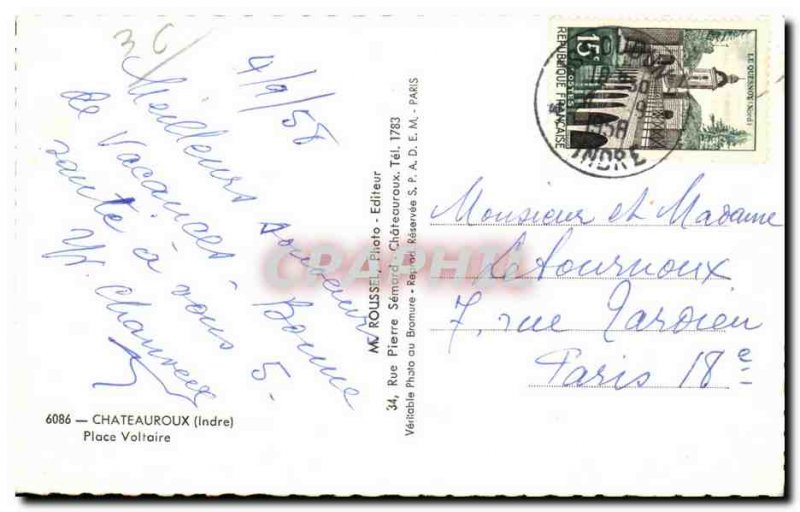 3 C
4/9/58
Meilleurs Souvenirs
de Vacances. Bonne
santé à vous 5.
Chauveux
6086 — CHATEAUROUX (Indre)
Place Voltaire
M. ROUSSEL, Photo - Editeur
34, Rue Pierre Sémard - Châteauroux. Tél. 1783
Véritable Photo au Bromure - Reproon Réservée S. P. A. D. E. M. - PARIS
15F
POSTES
REPUBLIQUE FRANÇAISE
LE QUESNOY (Nord)
1958
INDRE
Monsieur et Madame
Letournoux
7, rue Tardieu
Paris 18e
CRAPHTI